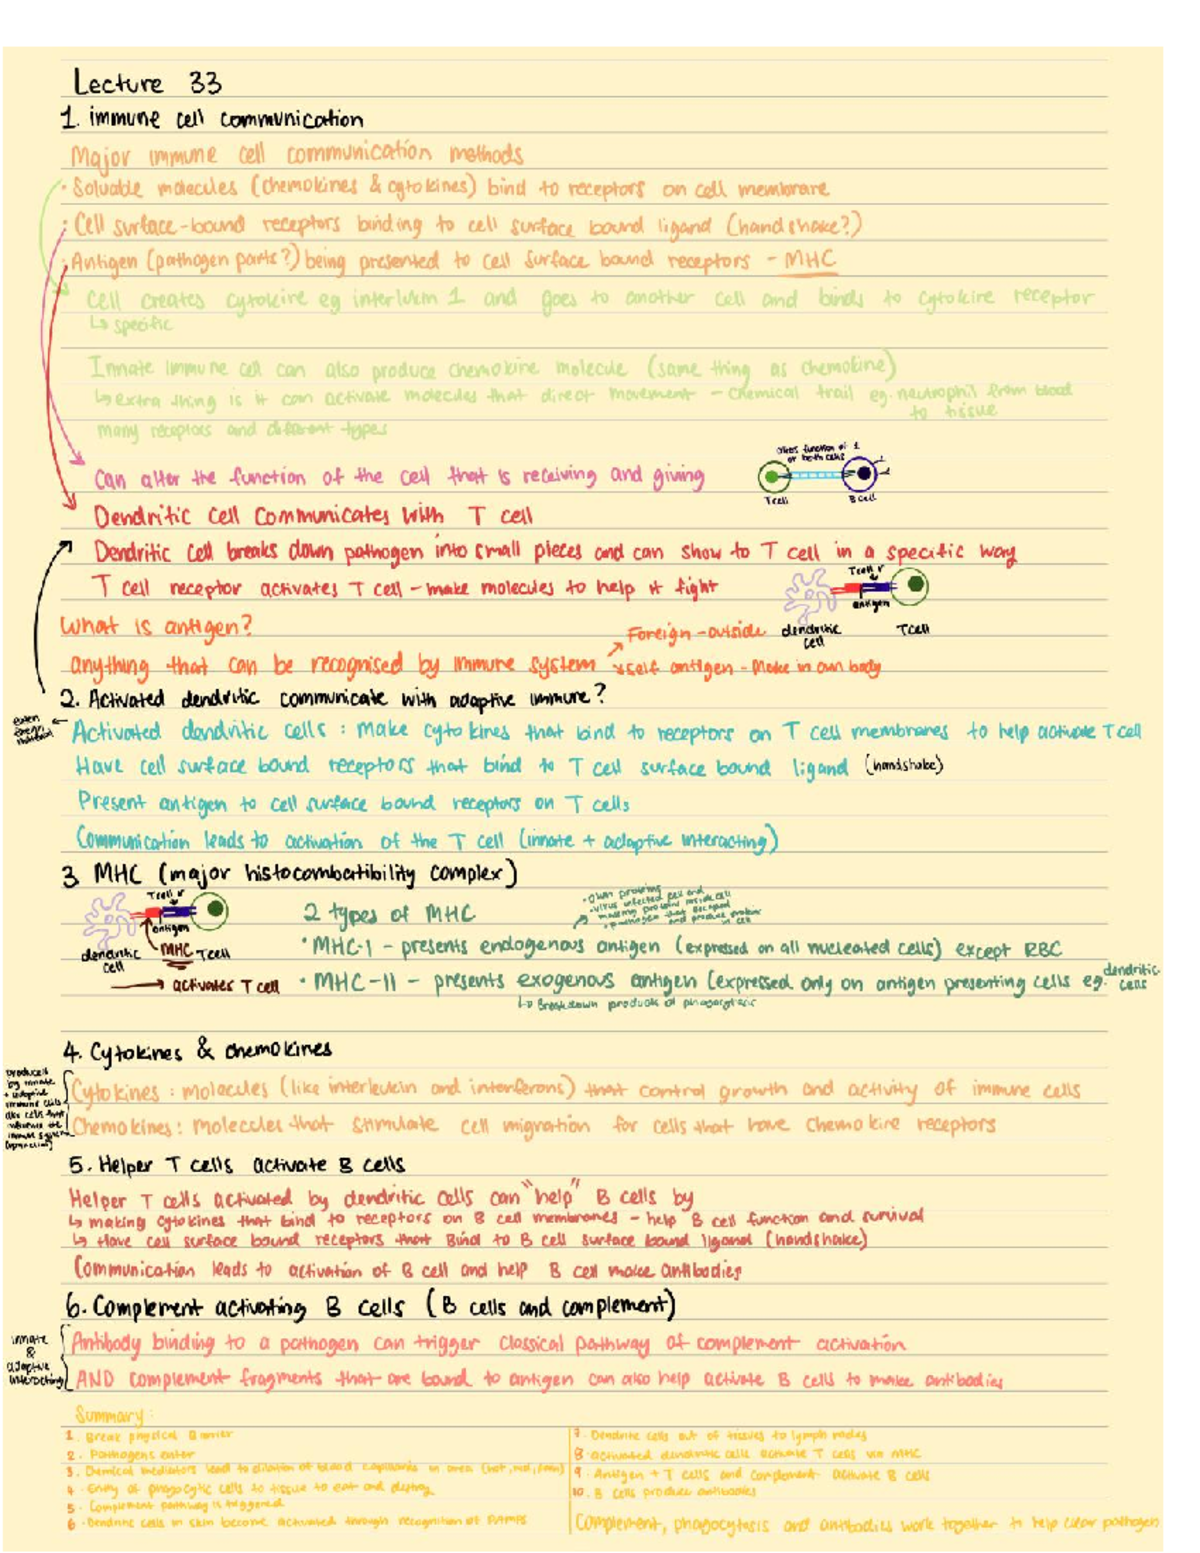 Lecture 33
1. immune cell communication
Major immune cell communication methods
• Soluable molecules (chemokines & cytokines) bind to receptors on cell membrane
• Cell surface-bound receptors binding to cell surface bound ligand (handshake?)
• Antigen (pathogen parts?) being presented to cell surface bound receptors - MHC
Cell creates cytokine eg interlukin 1 and goes to another cell and binds to cytokine receptor
↳ specific
Innate immune cell can also produce chemokine molecule (same thing as chemokine)
↳ extra thing is it can activate molecules that direct movement - chemical trail eg. neutrophil from blood
to tissue
many receptors and different types
Can alter the function of the cell that is receiving and giving
alters function of 1
or both cells
T cell
B cell
Dendritic cell communicates with T cell
Dendritic cell breaks down pathogen into small pieces and can show to T cell in a specific way
T cell receptor activates T cell - make molecules to help it fight
T cell r
antigen
dendritic
cell
T cell
What is antigen?
Foreign - outside
anything that can be recognised by immune system
self antigen - Make in own body
2. Activated dendritic communicate with adaptive immune?
eaten
foreign
material
Activated dendritic cells : make cytokines that bind to receptors on T cell membranes to help activate T cell
Have cell surface bound receptors that bind to T cell surface bound ligand (handshake)
Present antigen to cell surface bound receptors on T cells
Communication leads to activation of the T cell (innate + adaptive interacting)
3 MHC (major histocombatibility complex)
T cell r
antigen
dendritic
cell
MHC
T cell
→ activates T cell
• own proteins
• virus infected cell and
making proteins inside cell
2 types of MHC
• MHC-I - presents endogenous antigen (expressed on all nucleated cells) except RBC
• MHC-II - presents exogenous antigen (expressed only on antigen presenting cells eg. dendritic
cells
↳ Breakdown products of phagocytosis
4. Cytokines & chemokines
produced
by innate
+ adaptive
immune cells
Cytokines : molecules (like interleukin and interferons) that control growth and activity of immune cells
Chemokines : molecules that stimulate cell migration for cells that have chemokine receptors
5. Helper T cells activate B cells
Helper T cells activated by dendritic cells can "help" B cells by
↳ making cytokines that bind to receptors on B cell membranes - help B cell function and survival
↳ Have cell surface bound receptors that Bind to B cell surface bound ligand (handshake)
Communication leads to activation of B cell and help B cell make antibodies
6. Complement activating B cells (B cells and complement)
innate
&
adaptive
interacting
Antibody binding to a pathogen can trigger classical pathway of complement activation
AND complement fragments that are bound to antigen can also help activate B cells to make antibodies
Summary:
1. Break physical Barrier
2. Pathogens enter
3. Chemical mediators lead to dilation of blood capillaries in area
4. Entry of phagocytic cells to tissue to eat and destroy
5. Complement pathway is triggered
6. Dendritic cells in skin become activated through recognition of PAMPs
7. Dendrite cells out of tissues to lymph nodes
8. activated dendritic cells activate T cells via MHC
9. Antigen + T cells and complement activate B cells
10. B cells produce antibodies
Complement, phagocytosis and antibodies work together to help clear pathogen